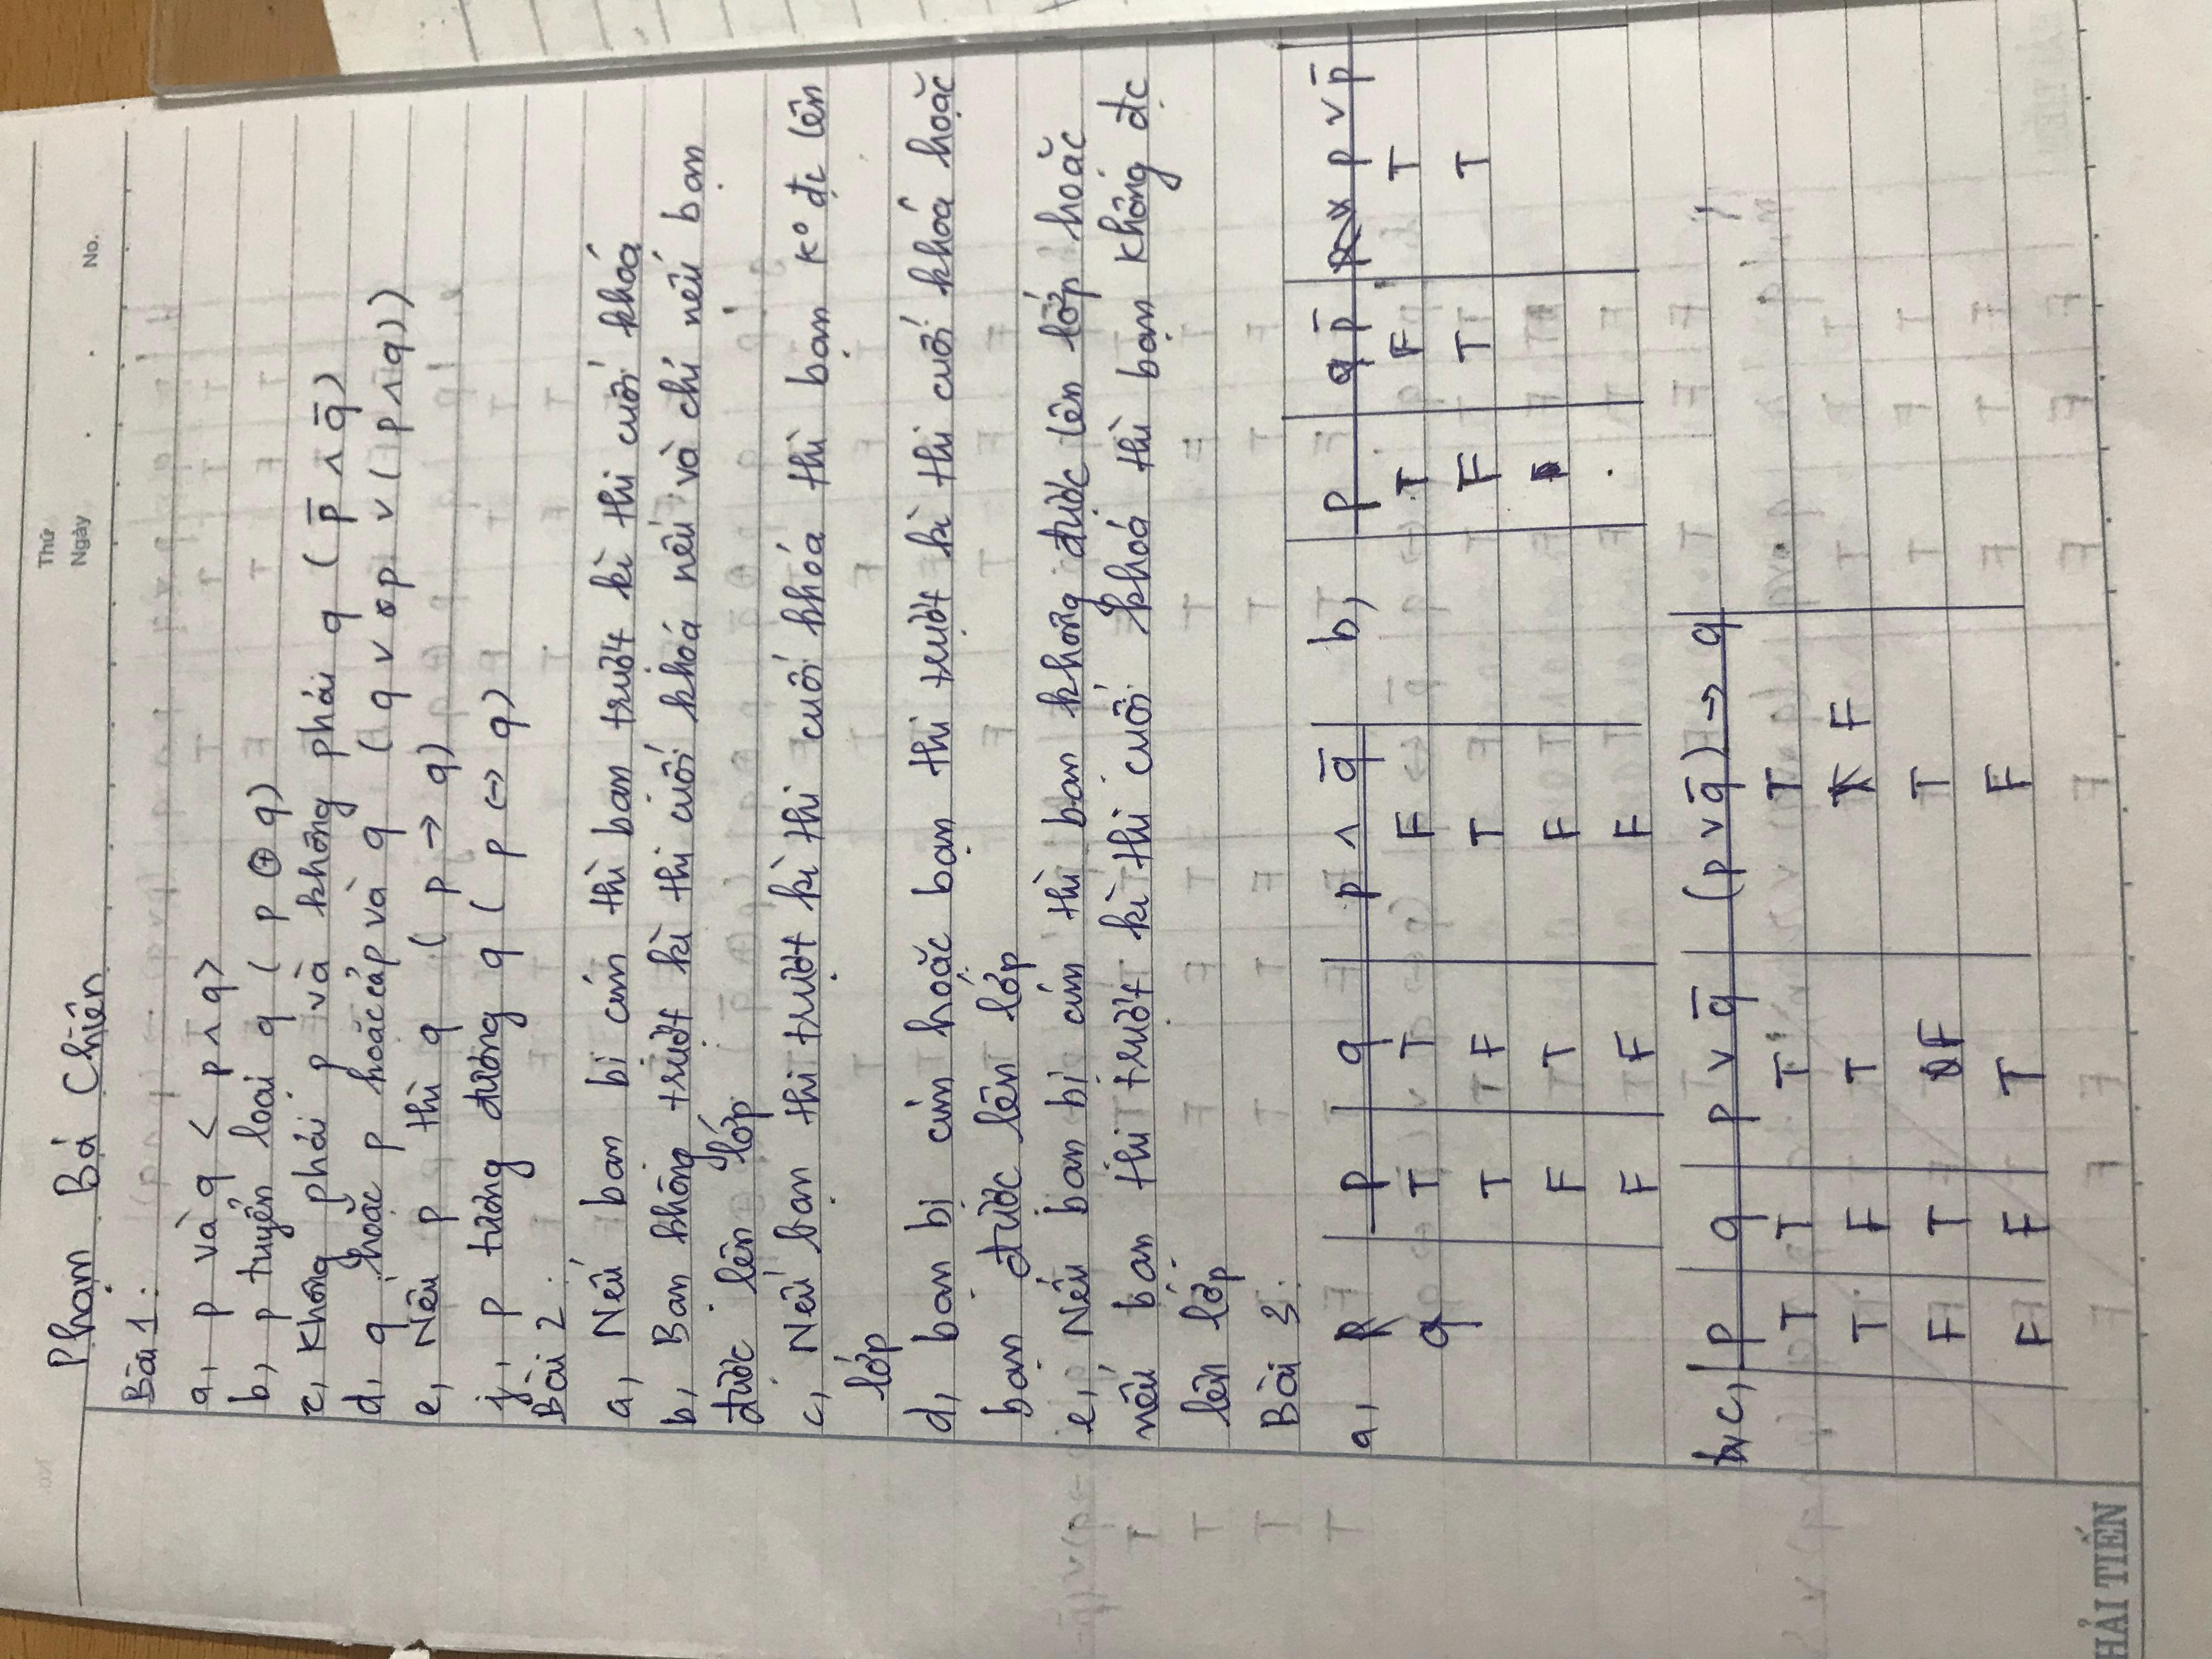 Thứ
Ngày
No.
Phạm Bá Chiên
Bài 1:
a, p và q < p ∧ q>
b, p tuyển loại q ( p ⊕ q)
c, Không phải p và không phải q ( p̄ ∧ q̄ )
d, q hoặc p hoặc cả p và q ( q ∨ p ∨ ( p ∧ q))
e, Nếu p thì q ( p → q)
j, p tương đương q ( p ↔ q)
Bài 2:
a, Nếu bạn bị cúm thì bạn trượt kì thi cuối khoá
b, Bạn không trượt kì thi cuối khoá nếu và chỉ nếu bạn
được lên lớp
c, Nếu bạn thi trượt kì thi cuối khoá thì bạn K° đc lên
lớp
d, bạn bị cúm hoặc bạn thi trượt kì thi cuối khoá hoặc
bạn được lên lớp
e, Nếu bạn bị cúm thì bạn không được lên lớp hoặc
nếu bạn thi trượt kì thi cuối khoá thì bạn không đc
lên lớp
Bài 3:
a, p q p ∧ q̄ b, p p̄ p ∨ p̄
q T T F T F T
T F T F T T
F T F
F F F
c, p q p ∨ q̄ (p ∨ q̄) → q
T T T T
T F T F
F T F T
F F T F
HẢI TIẾN